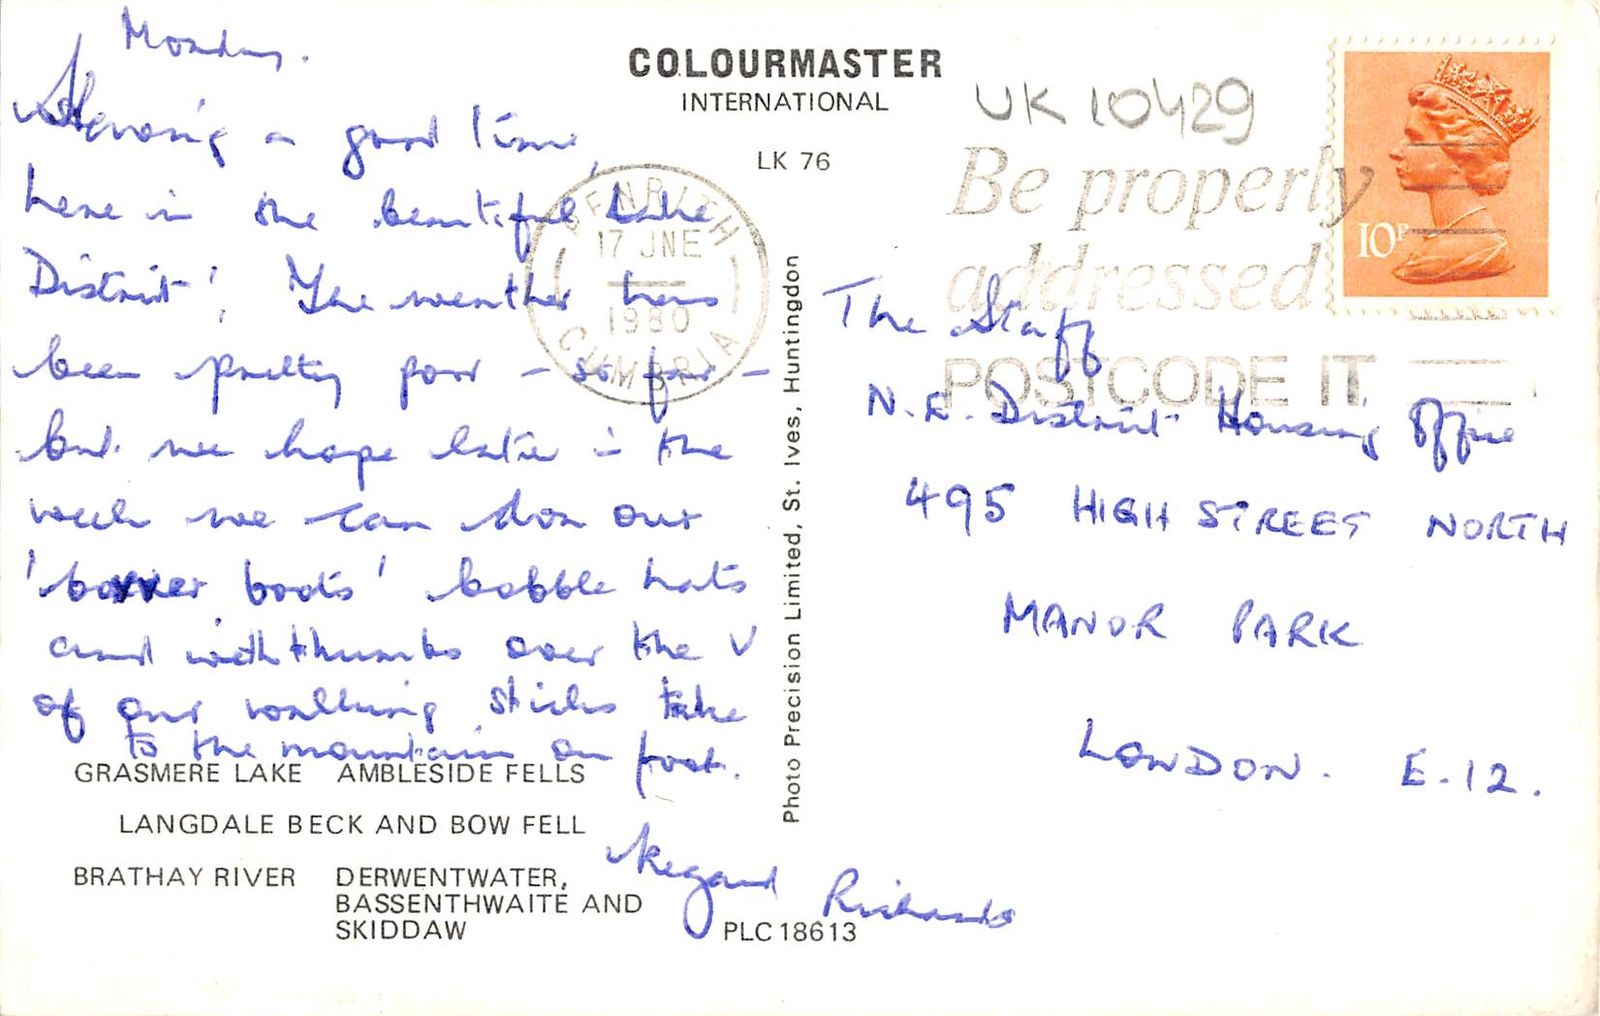 Monday.
Having a good time,
here in the beautiful Lake
District! The weather has
been pretty poor - so far -
but we hope later in the
week we can don our
'bovver boots' bobble hats
and with thumbs over the V
of our walking sticks take
to the mountain on foot.
Richards
COLOURMASTER
INTERNATIONAL
LK 76
UK 10429
Be properly
addressed
POSTCODE IT
10P
PENRITH
17 JNE
1980
CUMBRIA
The Staff
N.E. District Housing Office
495 HIGH STREET NORTH
MANOR PARK
LONDON. E.12.
Photo Precision Limited, St. Ives, Huntingdon
GRASMERE LAKE AMBLESIDE FELLS
LANGDALE BECK AND BOW FELL
BRATHAY RIVER DERWENTWATER,
BASSENTHWAITE AND
SKIDDAW
PLC18613